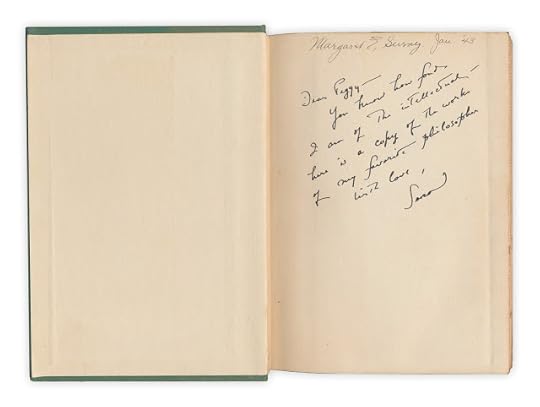 Margaret Jan '43
Dear Peggy —
You know how fond
I am of the intellectual —
here is a copy of the works
of my favorite philosopher
with love,